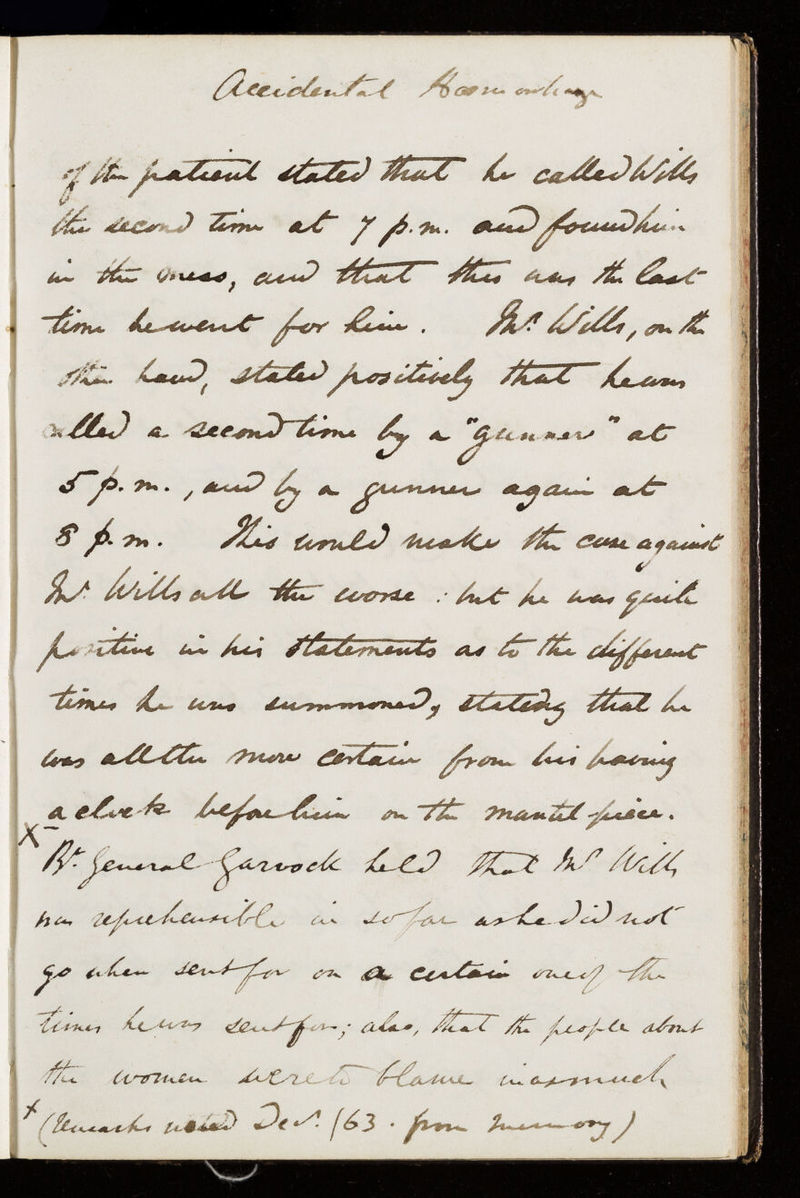 Accidental Haemorrhage
of the patient stated that he called Wills
the second time at 7 p.m. and found him
in the mess, and that this was the last
time he went for him. Mr. Wills, on the
other hand, stated positively that he was
called a second time by a "gunner" at
5 p.m., and by a gunner again at
8 p.m. This would make the case against
Mr. Wills all the worse: but he was quite
positive in his statements as to the different
times he was summoned, stating that he
was all the more certain from his having
a clock before him on the mantel piece.
X Br. General Garvock held that Mr Wills
was reprehensible in so far as he did not
go when sent for on a certain one of the
times he was sent for; also, that the people about
the woman were to blame inasmuch
x (Remarks noted Decr. /63. from memory)